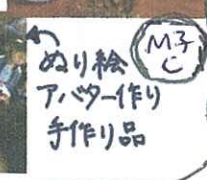 ぬり絵
アバター作り
手作り品
M子
C